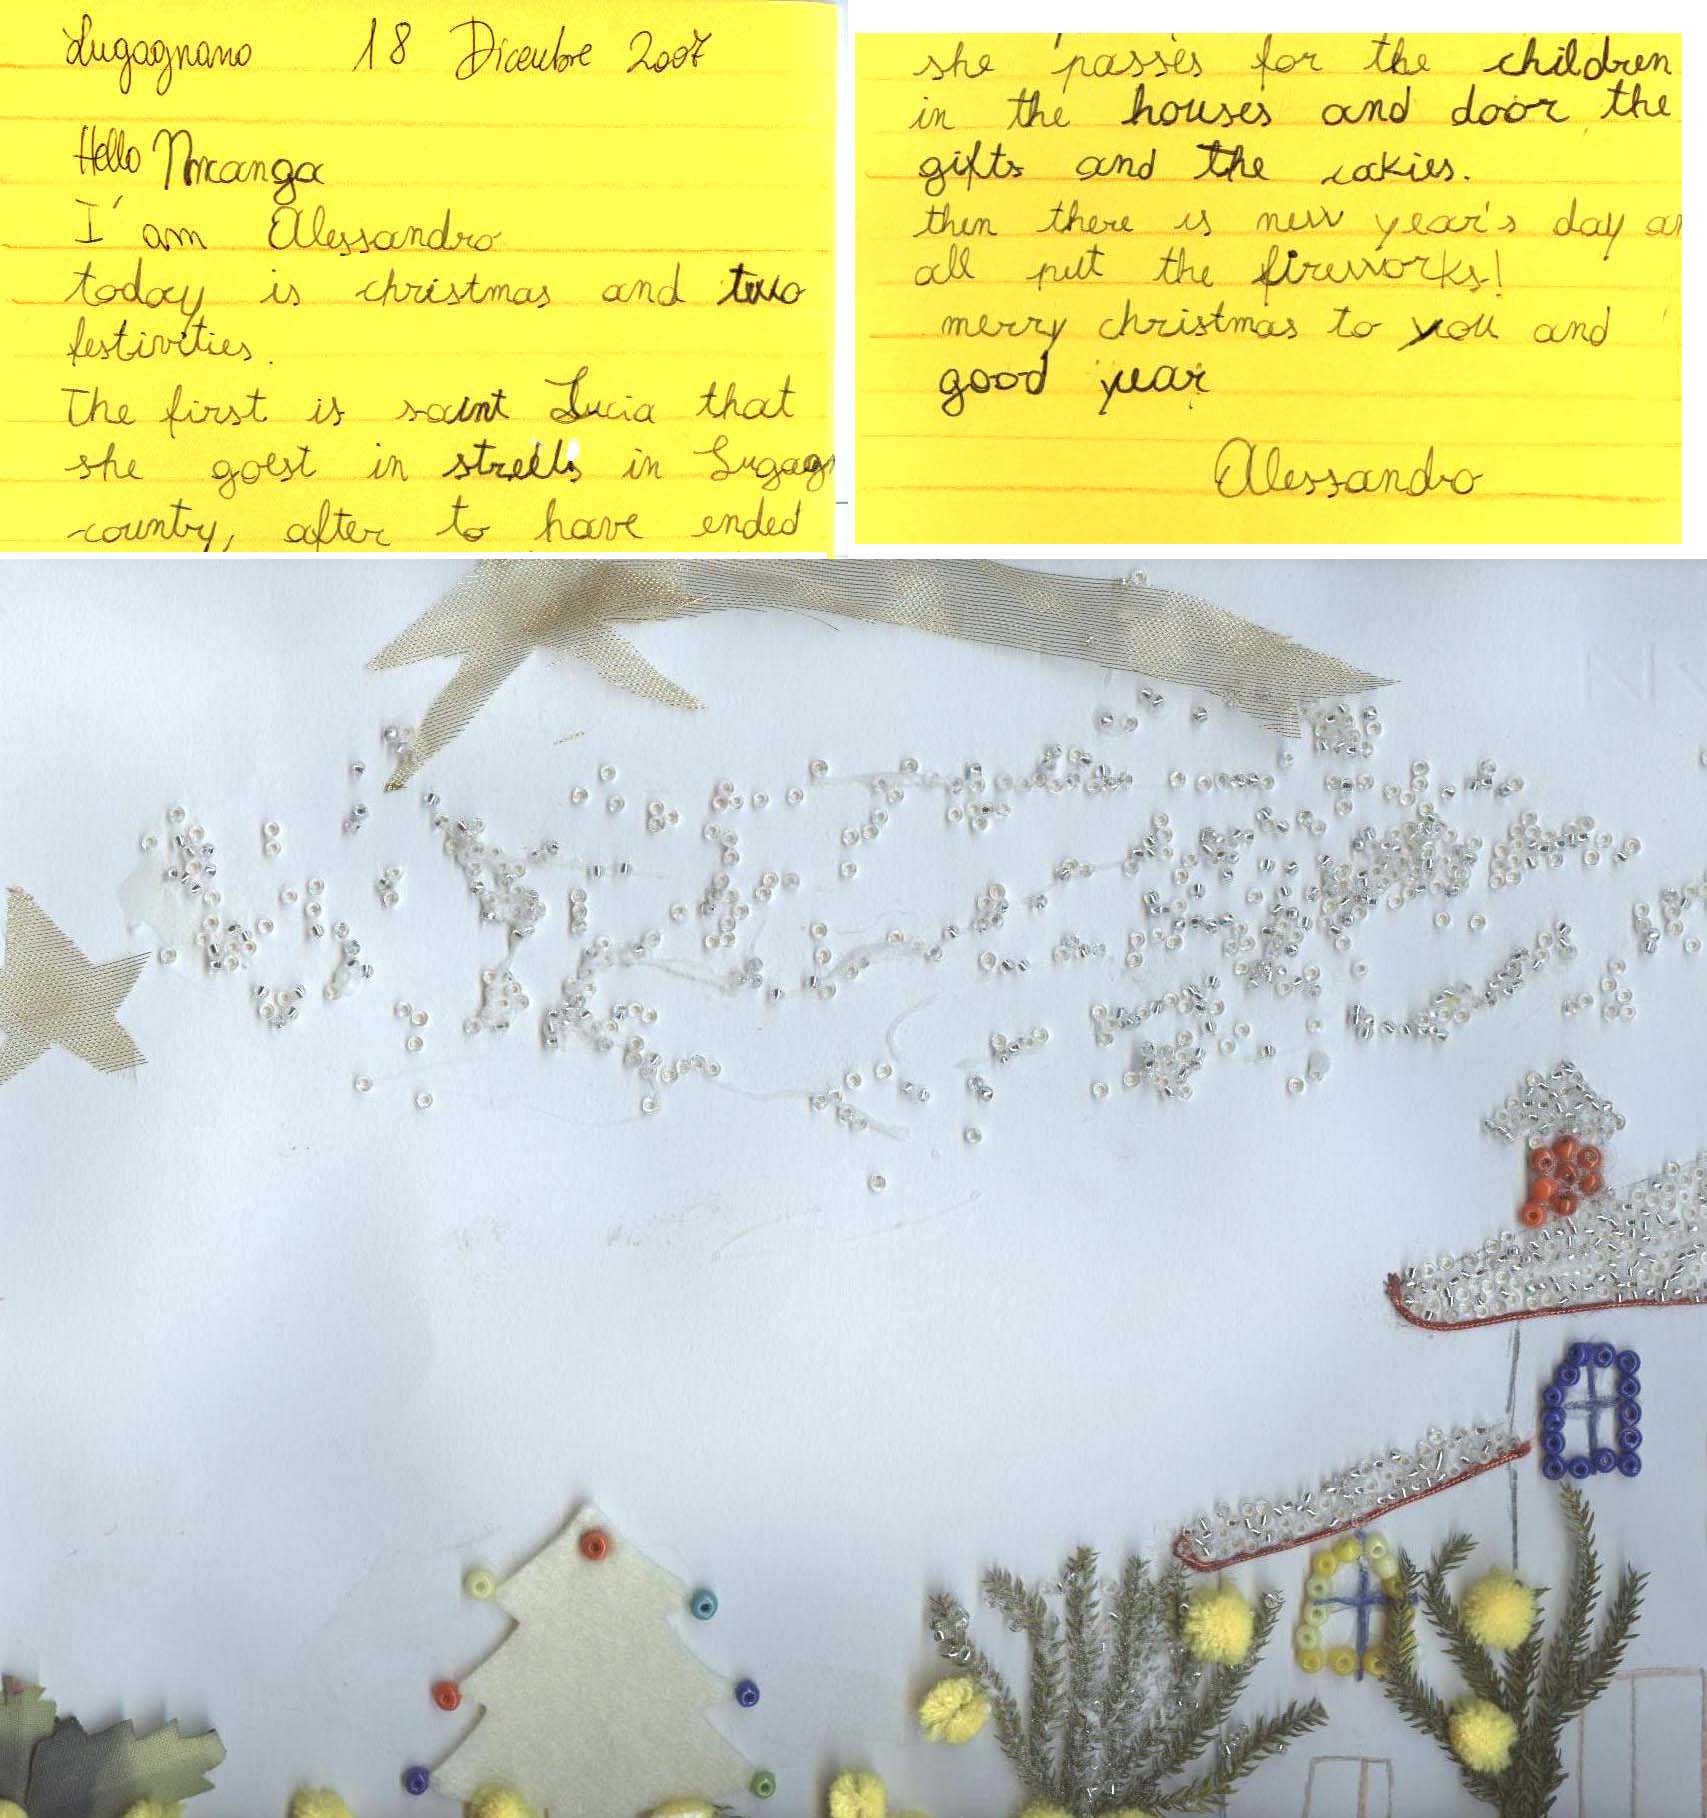 Lugagnano 18 Dicembre 2007
Hello Nmanga
I'am Alessandro
today is christmas and two
festivities.
The first is saint Lucia that
she goest in streets in Lugagn
country, after to have ended
she passes for the children
in the houses and door the
gifts and the cakies.
then there is new year's day an
all put the fireworks!
merry christmas to you and
good year
Alessandro